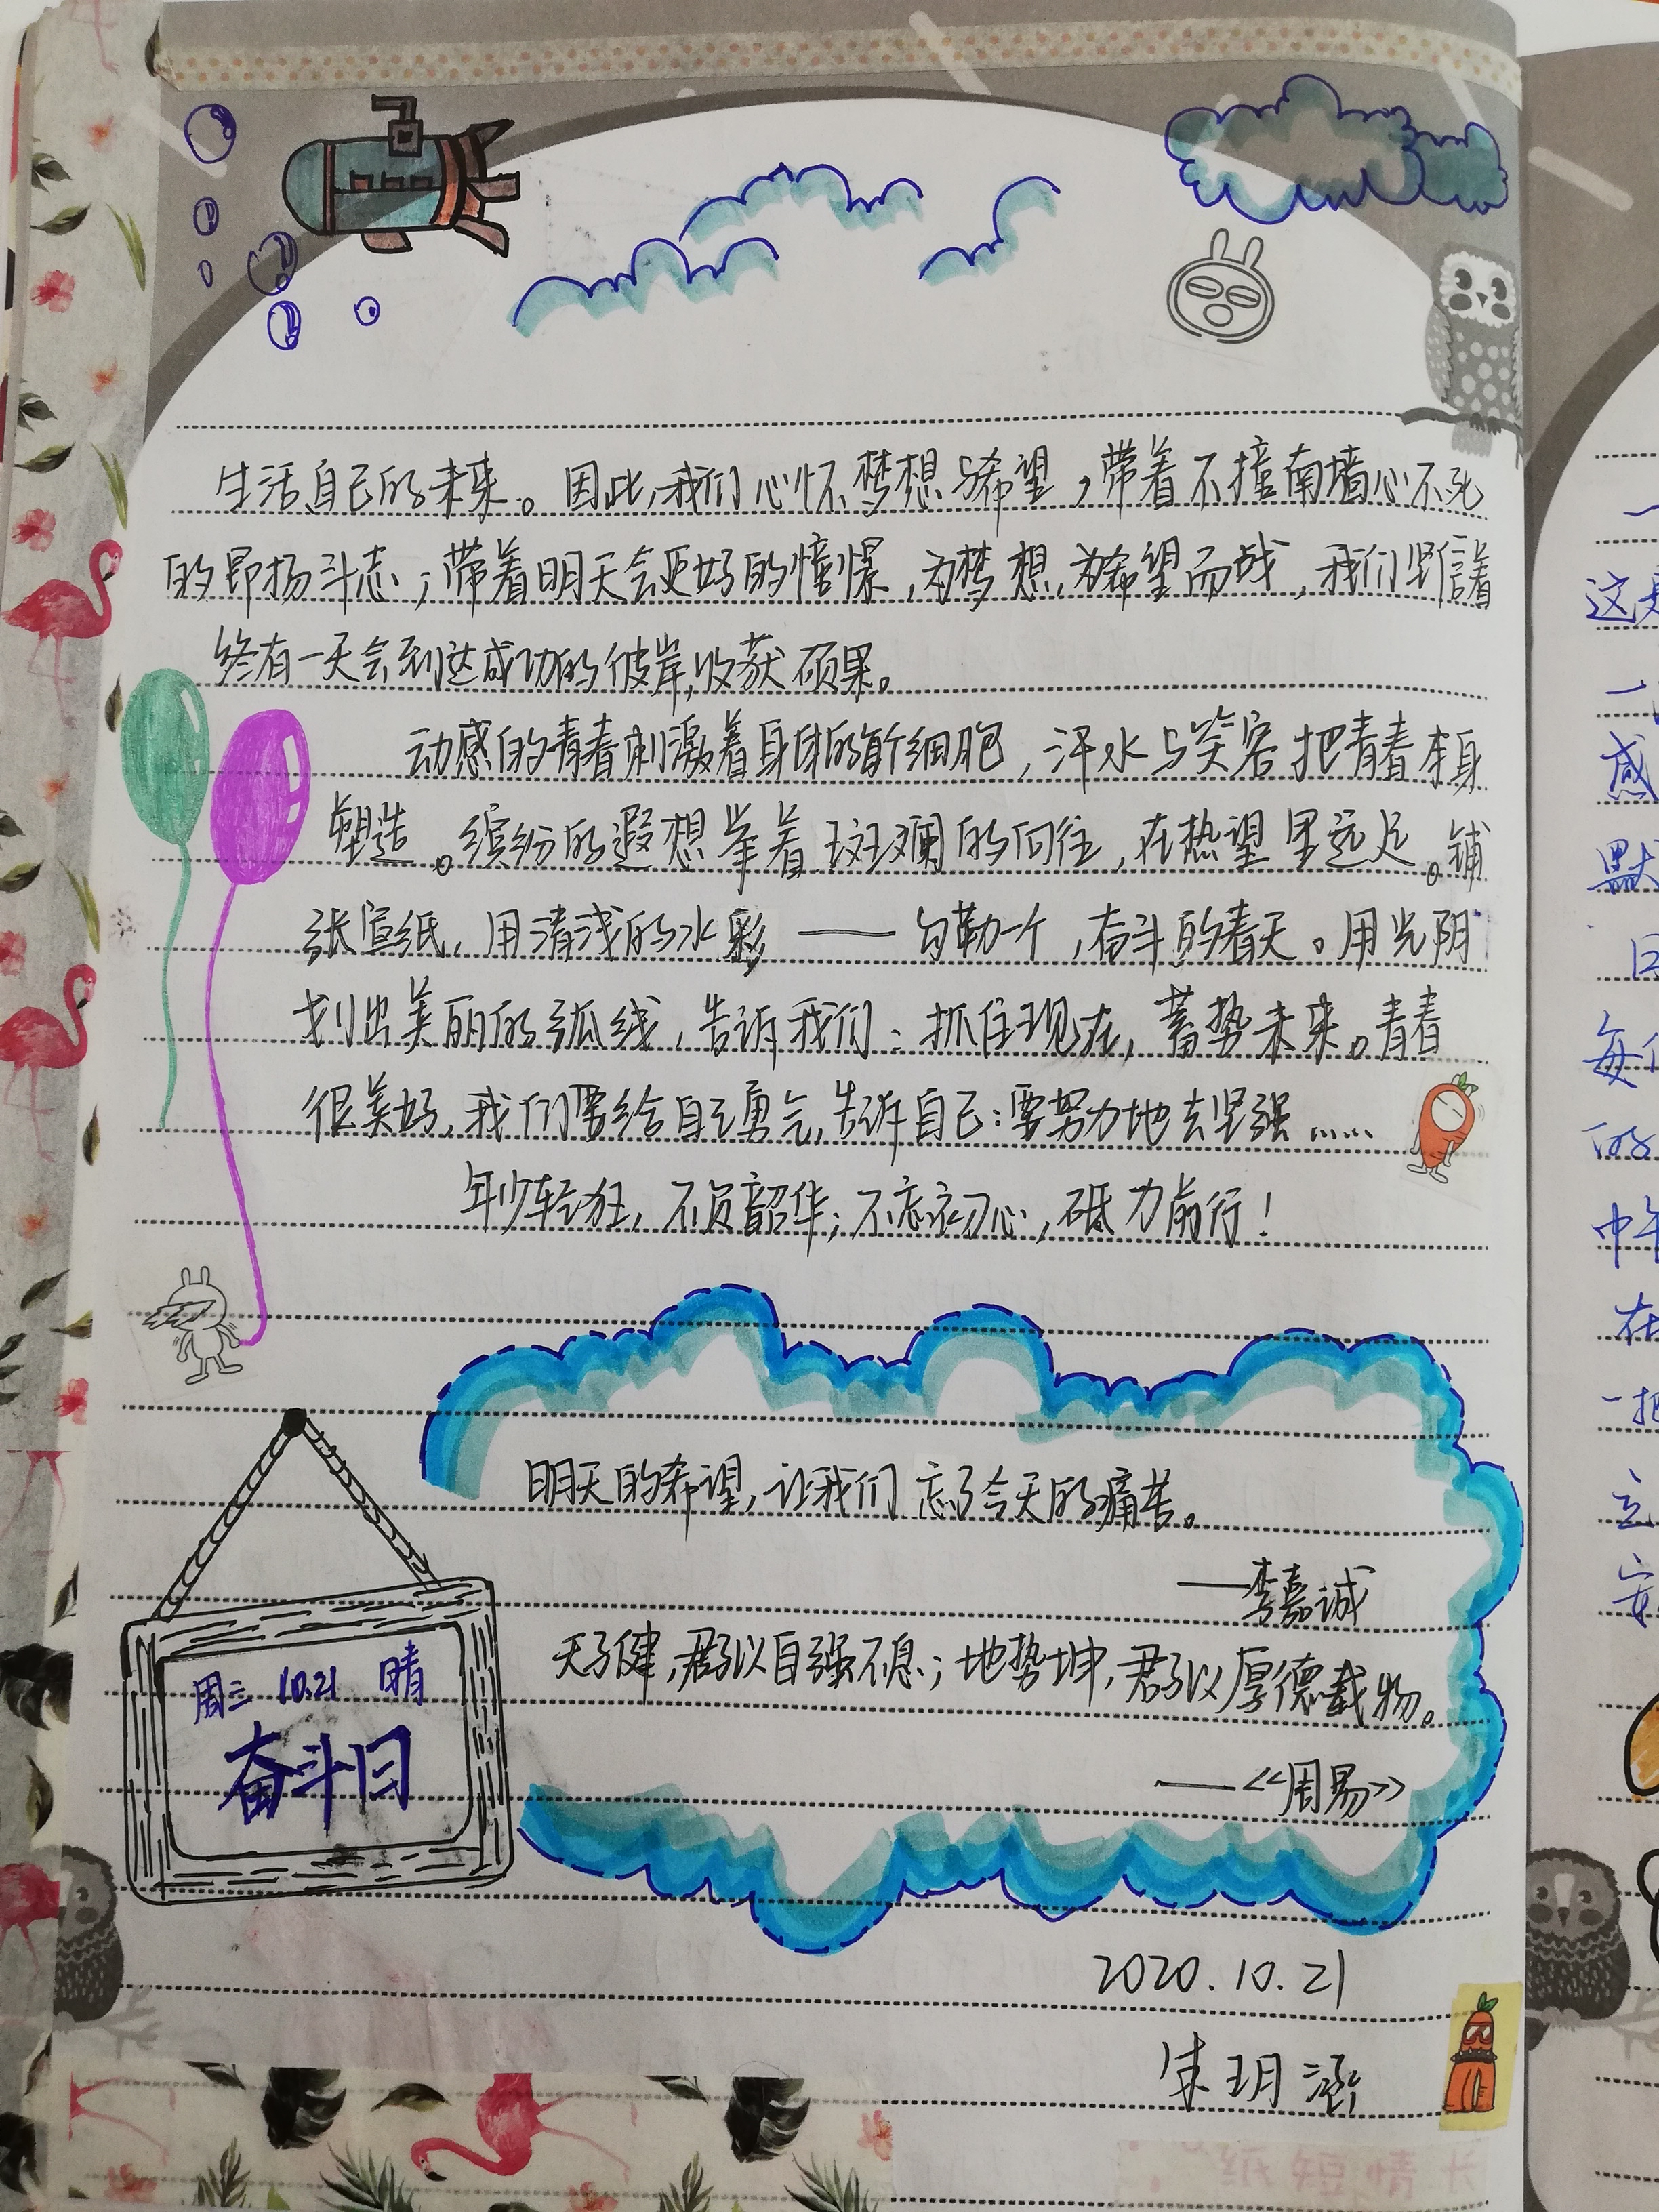 生活自己的未来。因此,我们心怀梦想与希望,带着不撞南墙心不死
的昂扬斗志;带着明天会更好的憧憬,为梦想,为希望而战,我们坚信着
终有一天会到达成功的彼岸,收获硕果。
动感的青春刺激着身体的每个细胞,汗水与笑容把青春本身
塑造。缤纷的遐想牵着斑斓的向往,在热望里远足。铺
张宣纸,用清浅的水彩——勾勒一个,奋斗的春天。用光阴
划出美丽的弧线,告诉我们:抓住现在,蓄势未来。青春
很美好,我们要给自己勇气,告诉自己:要努力地去坚强……
年少轻狂,不负韶华;不忘初心,砥力前行!
明天的希望,让我们忘了今天的痛苦。
——李嘉诚
天行健,君子以自强不息;地势坤,君子以厚德载物。
——《周易》
周三 10.21 晴
奋斗日
2020.10.21
朱玥涵
纸短情长
这是
感
默
每
的
中午
在
一把
安